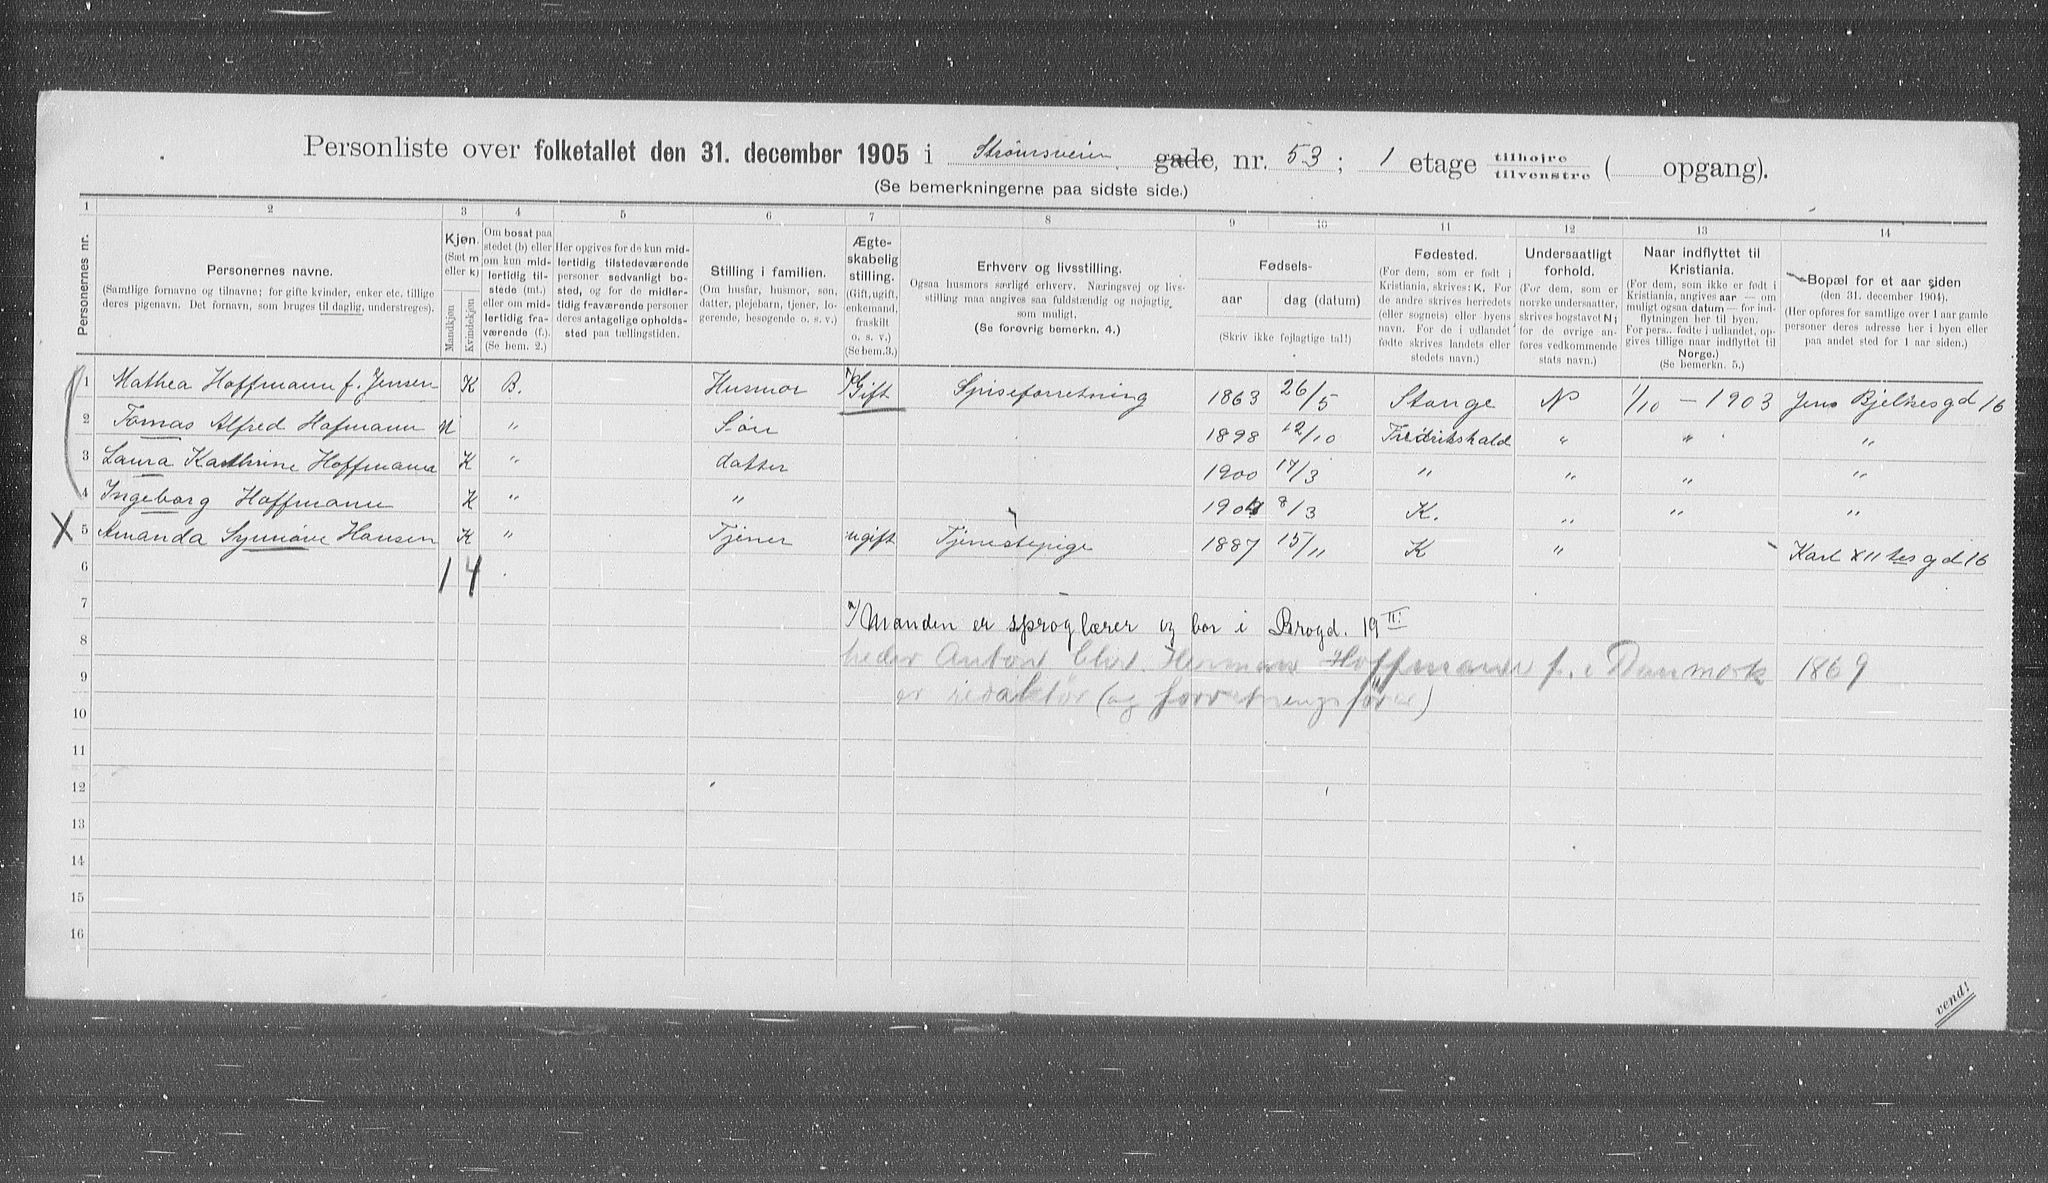 Personliste over folketallet den 31. december 1905 i Strømsveien gade, nr. 53; 1 etage tilhøjre tilvenstre ( opgang).
(Se bemerkningerne paa sidste side.)
1 2 3 4 5 6 7 8 9 10 11 12 13 14
Personernes nr.
Personernes navne.
(Samtlige fornavne og tilnavne; for gifte kvinder, enker etc. tillige
deres pigenavn. Det fornavn, som bruges til daglig, understreges).
Kjøn.
(Sæt m
eller k)
Mandkjøn
Kvindekjøn
Om bosat paa
stedet (b) eller
om kun mid-
lertidig til-
stede (mt.)
eller om mid-
lertidig fra-
værende (f.).
(Se bem. 2.)
Her opgives for de kun mid-
lertidig tilstedeværende
personer sedvanlig bo-
sted, og for de midler-
tidig fraværende personer
deres antagelige opholds-
sted paa tællingstiden.
Stilling i familien.
(Om husfar, husmor, søn,
datter, plejebarn, tjener, lo-
gerende, besøgende o. s. v.)
Ægte-
skabelig
stilling.
(Gift, ugift,
enkemand,
fraskilt
o. s. v.)
(Se bem. 3.)
Erhverv og livsstilling.
Ogsaa husmors særlige erhverv. Næringsvej og livs-
stilling maa angives saa fuldstændig og nøjagtig
som muligt.
(Se forøvrig bemerkn. 4.)
Fødsels-
aar dag (datum)
(Skriv ikke fejlagtige tal!)
Fødested.
(For dem, som er født i
Kristiania, skrives: K. For
de andre skrives herredets
(eller sognets) eller byens
navn. For de i udlandet
fødte skrives landets eller
stedets navn.)
Undersaatligt
forhold.
(For dem, som er
norske undersaatter,
skrives bogstavet N;
for de øvrige an-
føres vedkommende
stats navn.)
Naar indflyttet til
Kristiania.
(For dem, som ikke er født i
Kristiania, angives aar — om
muligt ogsaa datum — for ind-
flytningen her til byen.
For pers. fødte i udlandet, op-
gives tillige naar indflyttet til
Norge.)
(Se bemerkn. 5.)
Bopæl for et aar siden
(den 31. december 1904).
(Her opføres for samtlige over 1 aar gamle
personer deres adresse her i byen eller
paa andet sted for 1 aar siden.)
1 Mathea Hoffmann f. Jensen K B. Husmor 1/ Gift Spiseforretning 1863 26/5 Stange N 1/10 - 1903 Jens Bjelkesgd 16
2 Tomas Alfred Hofmann M " Søn 1898 12/10 Fredrikshald " " "
3 Laura Kathrine Hoffmann K " datter 1900 17/3 " " " "
4 Ingeborg Hoffmann K " " 1904 8/3 K. " " "
X 5 Amanda Synnøve Hansen K " Tjener ugift Tjenestepige 1887 15/11 K " Karl XII tes gd 16
6 1 4
7 1/ Manden er sproglærer og bor i Brogd. 19 II
8 heder Anton Chr. Herman Hoffmann f. i Danmark 1869
9 er redaktør (og forretningsfører)
10
11
12
13
14
15
16
vend!